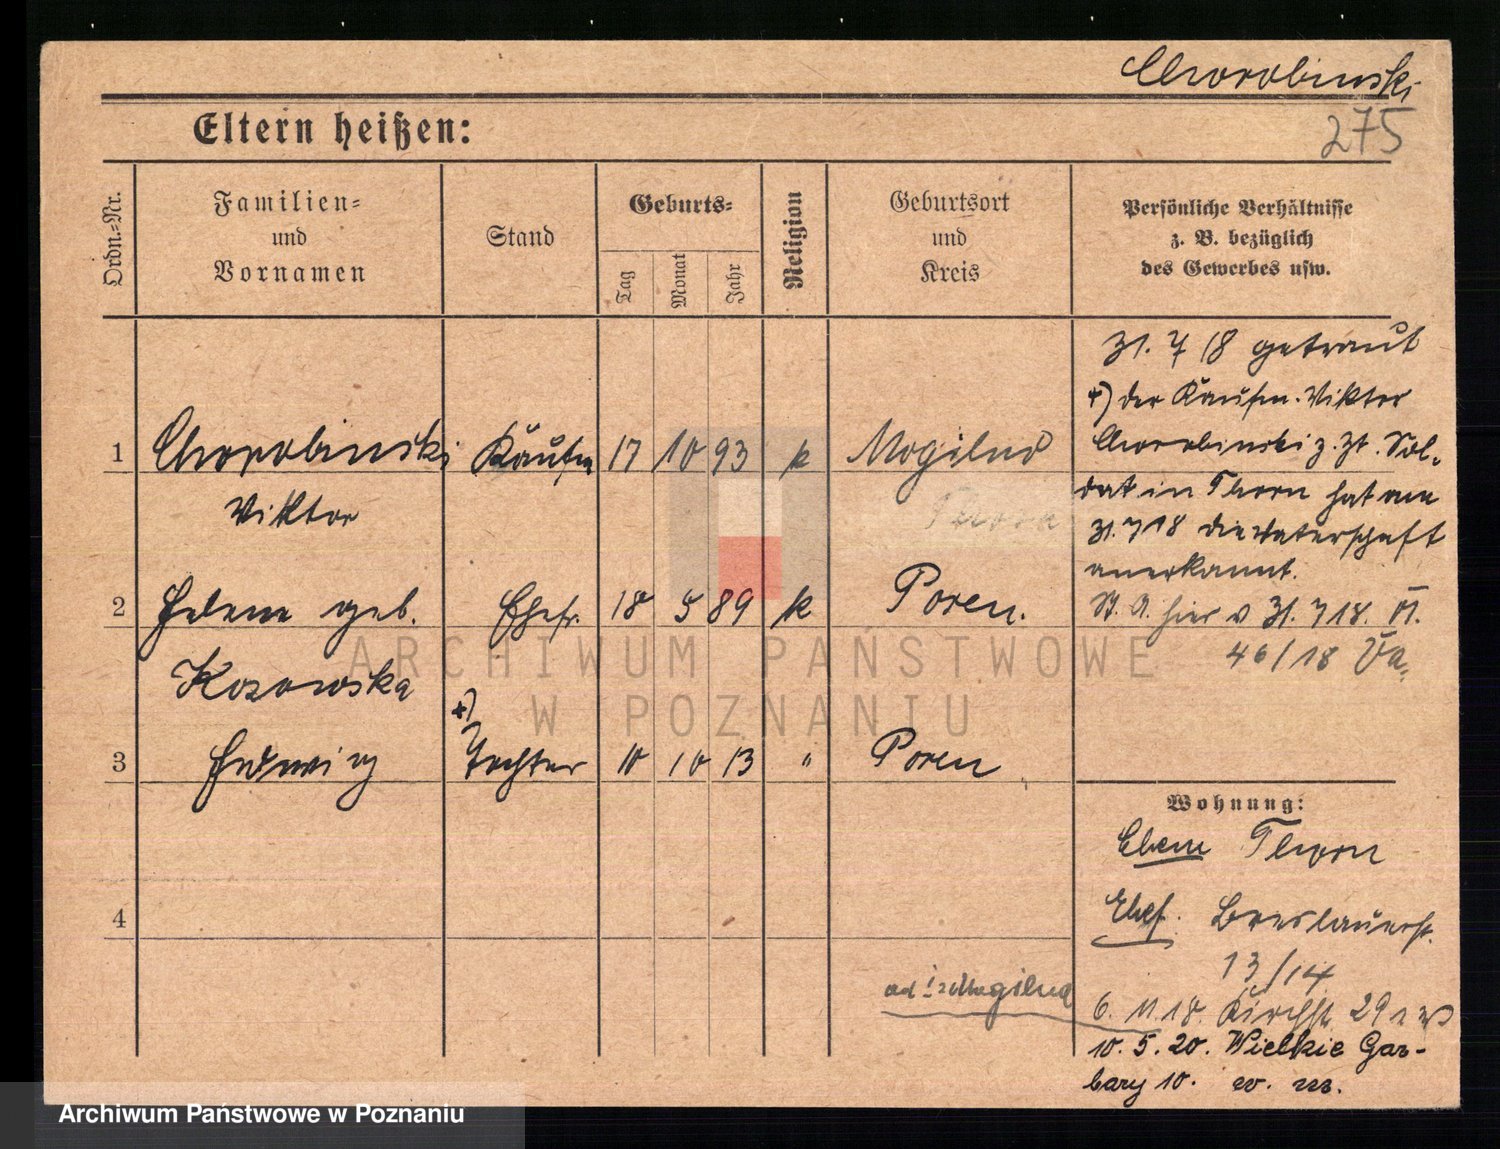 Chorobinski
275
Eltern heißen:
Ordn.-Nr.
Familien- und Vornamen
Stand
Geburts-
Tag
Monat
Jahr
Religion
Geburtsort und Kreis
Persönliche Verhältnisse
z. B. bezüglich
des Gewerbes usw.
31. 7 18 getraut
+) der Kaufm. Viktor
Chorobinski z. Zt. Sol-
dat in Thorn hat am
31.7 18 die Vaterschaft
anerkannt.
St. A. hier v 31. 7 18. VI.
46/18
1 Chorobinski Kaufm 17 10 93 k Mogilno
Viktor
Thorn
2 Helene geb. Ehefr. 18 5 89 k Posen.
Kosowska
+)
3 Hedwig Tochter 10 10 13 " Posen
4
Wohnung:
Ehem Thorn
Ehef. Breslauerst.
13/14
6. 11. 18. Kirchst. 29
10. 5. 20. Wielkie Gar-
bary 10. w. m.
Mogilna
ARCHIWUM PAŃSTWOWE
W POZNANIU
Archiwum Państwowe w Poznaniu